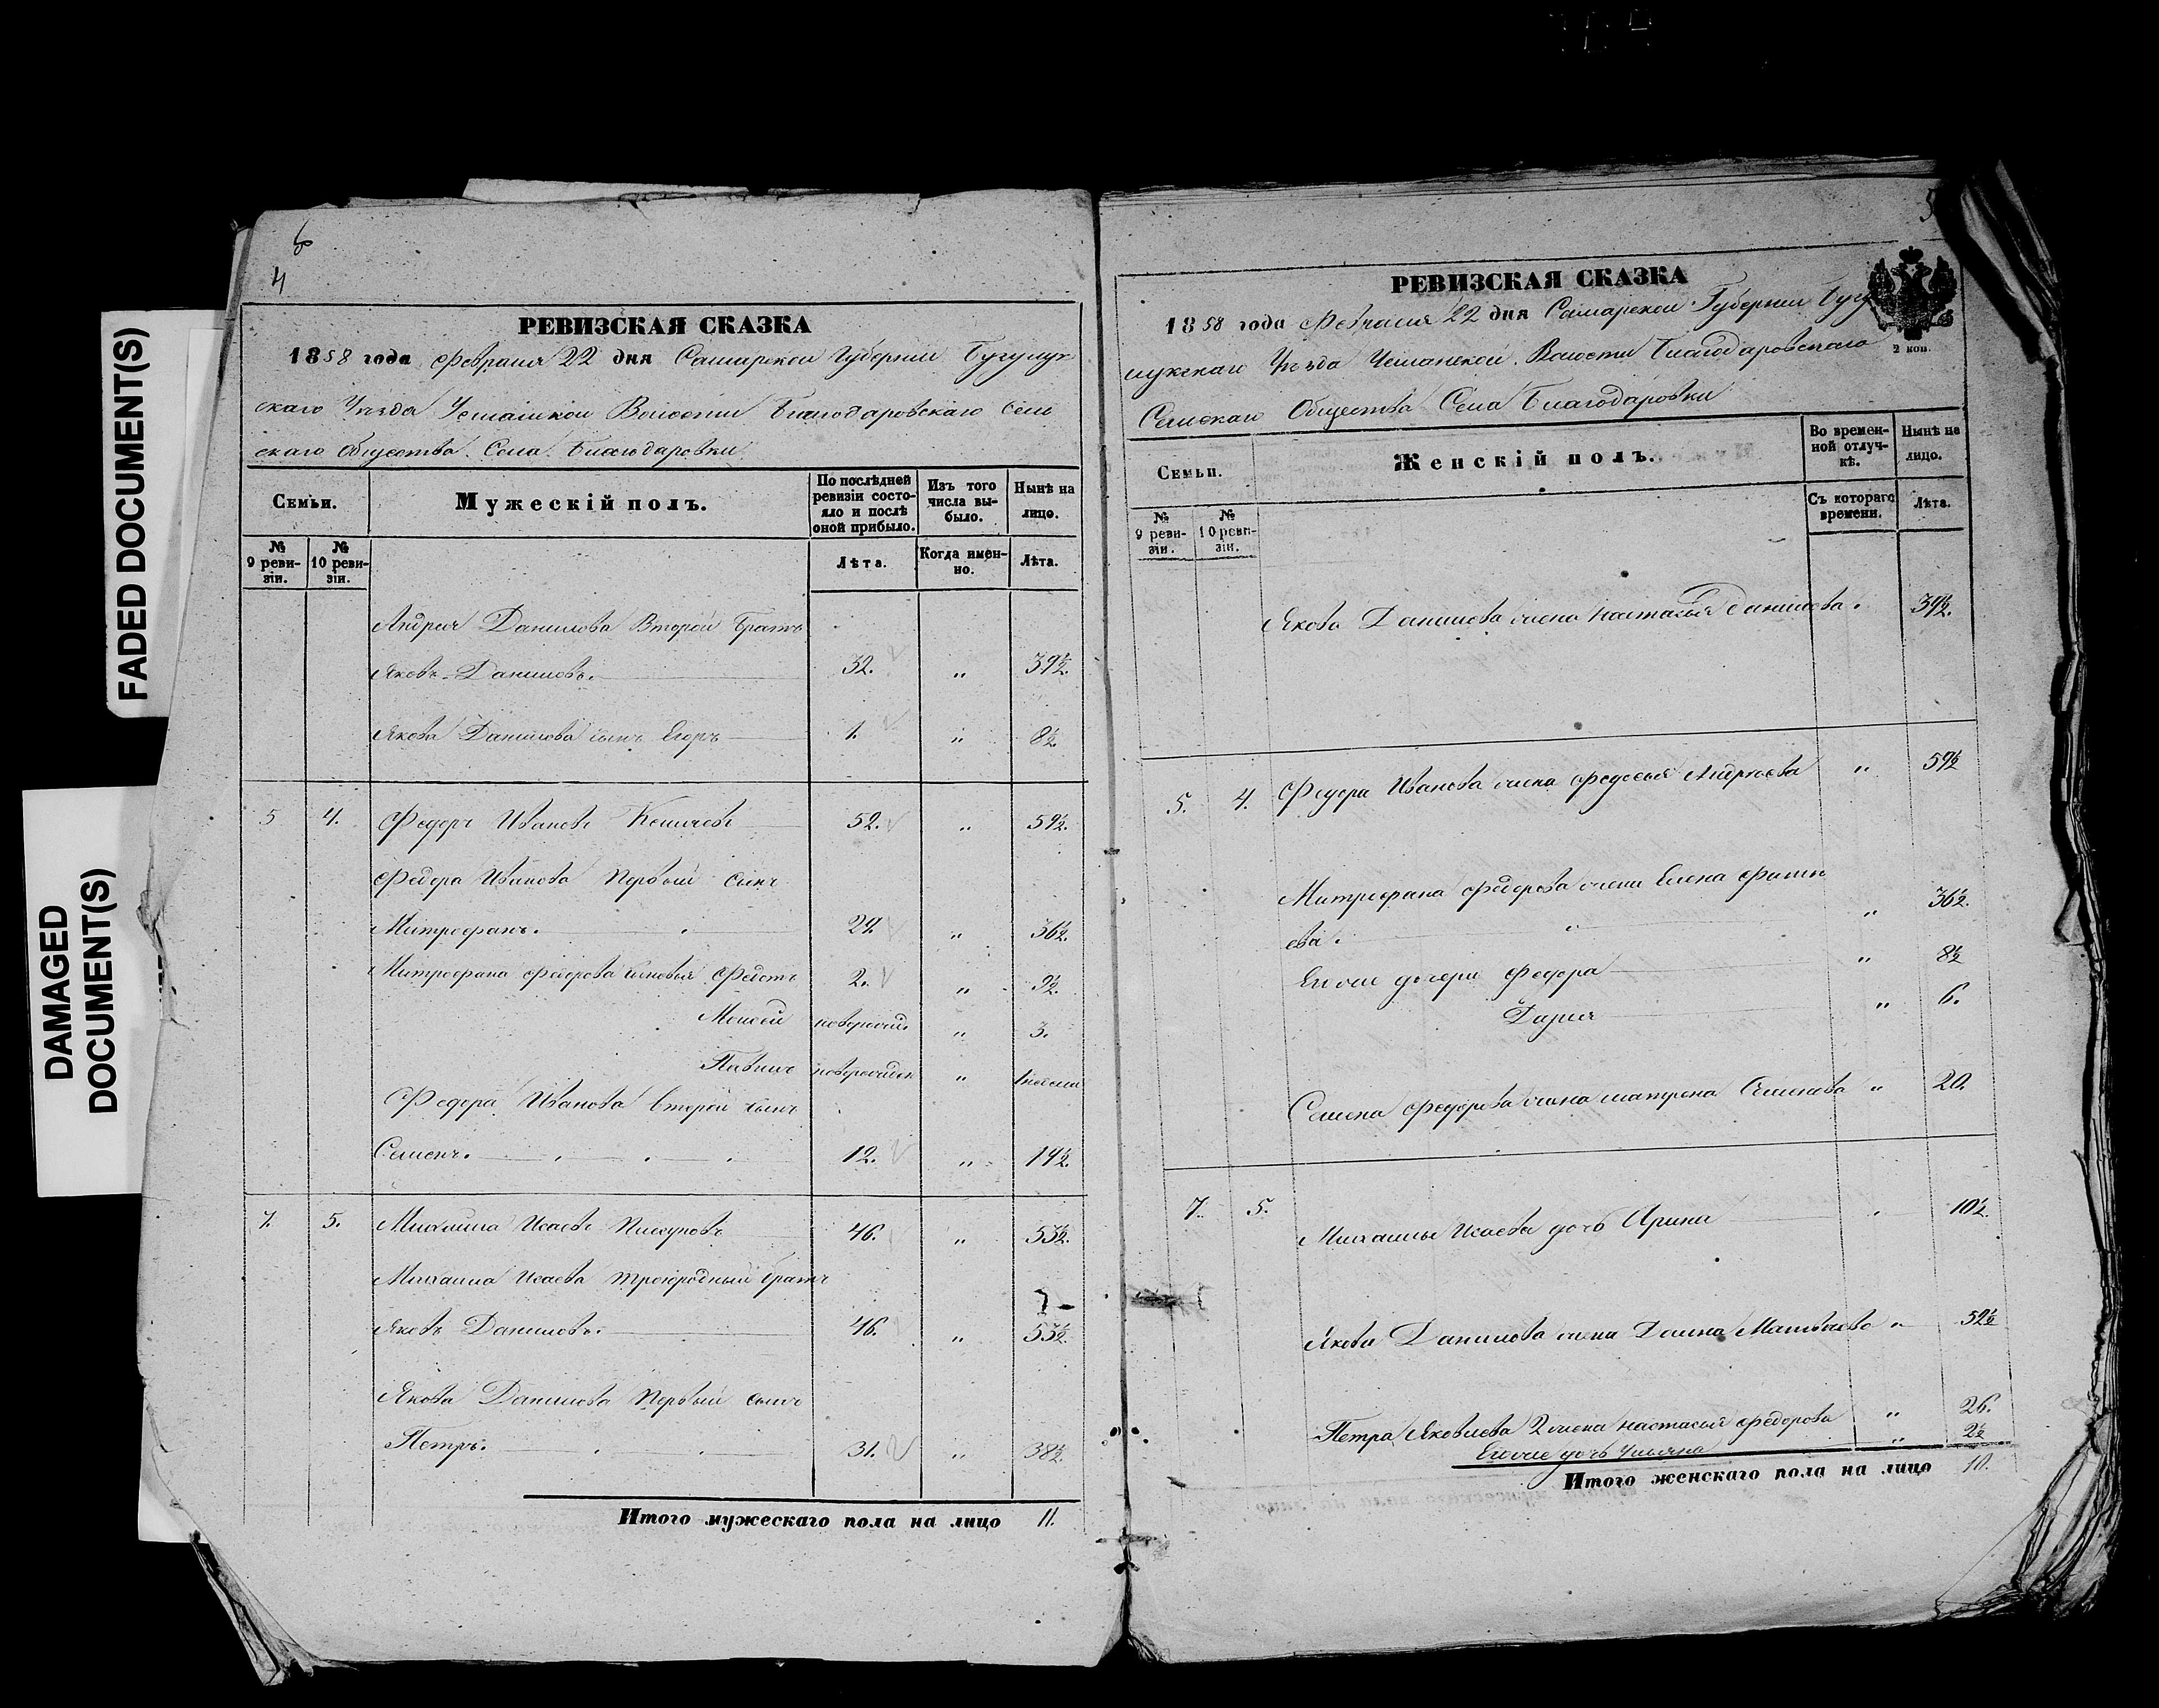 FADED DOCUMENT(S)
DAMAGED
DOCUMENT(S)
6
4
РЕВИЗСКАЯ СКАЗКА
1858 года Февраля 22 дня Самарской Губерніи Бугульм
скаго Уезда Волости Благодаровскаго Сель
скаго Общества Села Благодаровки
Семьи.
Мужескій полъ.
По послѣдней ревизіи состояло и послѣ оной прибыло.
Изъ того числа выбыло.
Нынѣ на лицо.
№ 9 ревизіи.
№ 10 ревизіи.
Лѣта.
Когда именно.
Лѣта.
Андрея Данилова Второй братъ
Яковъ Даниловъ. 32. " 39½.
Якова Данилова сынъ Егоръ 1. " 8½.
5 4. Федоръ Ивановъ 52. " 59½.
Федора Иванова Первый сынъ
Митрофанъ. 29. " 36½.
Митрофана Федорова сыновья 2. " 9½.
Моисей новорожд. " 3.
новорожден "
Федора Иванова второй сынъ
Семенъ. 12. " 19½.
7. 5. Михаила Исаевъ 46. " 53½.
Михаила Исаева троюродный братъ
Яковъ Даниловъ. 46. " 53½.
Якова Данилова Первый сынъ
Петръ. 31. " 38½.
Итого мужескаго пола на лицо 11.
5
РЕВИЗСКАЯ СКАЗКА
1858 года Февраля 22 дня Самарской Губерніи Бугу
2 коп.
Уѣзда Волости Благодаровскаго
Общества Села Благодаровки
Семьи.
Женскій полъ.
Во временной отлучкѣ.
Нынѣ на лицо.
№ 9 ревизіи.
№ 10 ревизіи.
Съ котораго времени.
Лѣта.
Якова Данилова жена Настасья Данилова. 39½.
5. 4. Федора Иванова жена Федосья Андреева " 59½
Митрофана Федорова жена Елена
ева. " 36½.
Егоже дочери Федора " 8½
Дарья " 6.
Семена Федорова жена матрена Семенова " 20.
7. 5. Михаилы Исаева дочь Ирина 10½.
Якова Данилова жена Домна Матвѣева " 52½
Петра Яковлева 2 жена настасья Федорова " 26.
Егоже дочь Ульяна " 2½
Итого женскаго пола на лицо 10.